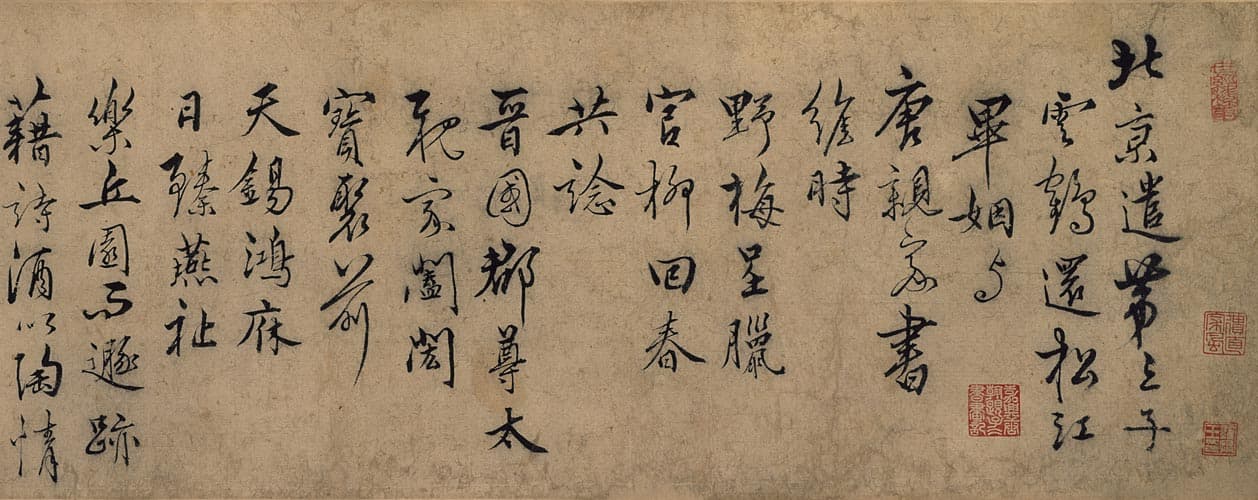 北京遣第三子
雲鶴還松江
畢姻与
唐親家書
維時
野梅呈臘
宫柳回春
共諗
晉國郡尊太
親家閤閎
寶聚前
天錫鴻庥
日臻燕祉
樂丘園而遯跡
藉詩酒以陶情